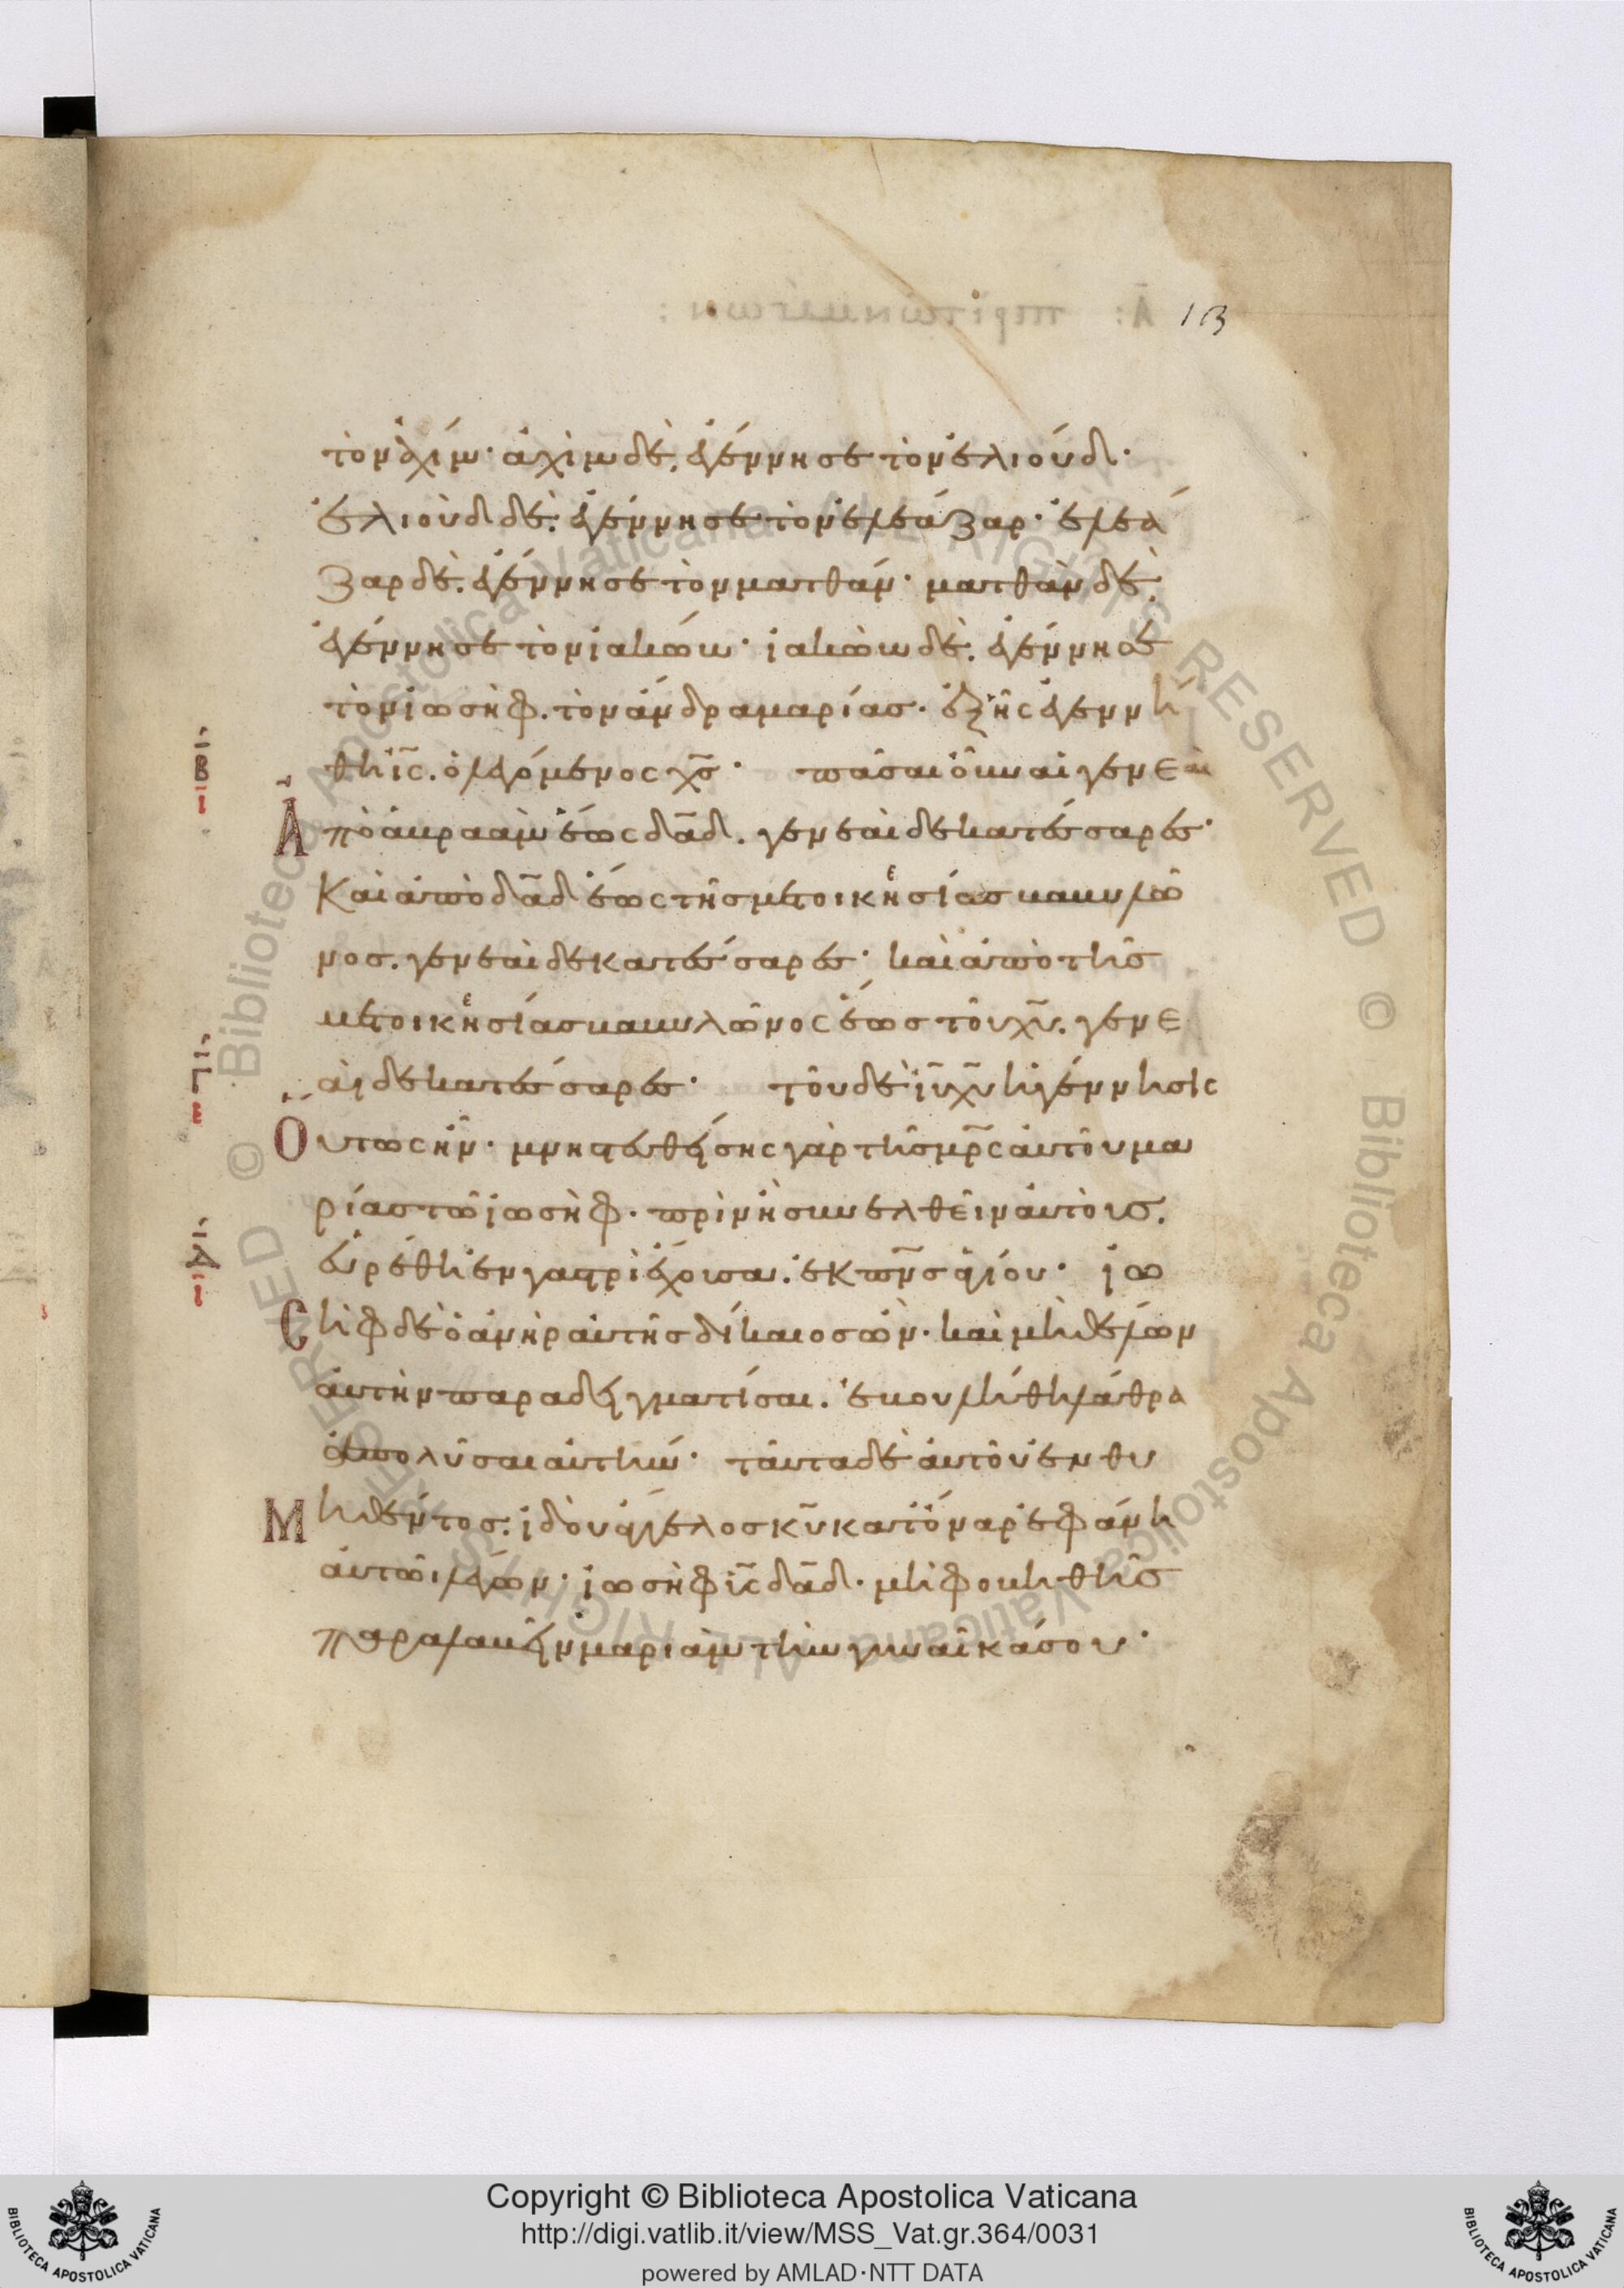 13
τὸν ἀχίμ· ἀχὶμ δὲ, ἐγέννησε τὸν ἐλιούδ·
ἐλιοὺδ δὲ. ἐγέννησε τὸν ἐλεάζαρ· ἐλεά
ζαρ δὲ. ἐγέννησε τὸν ματθάν· ματθὰν δὲ.
ἐγέννησε τὸν ἰακώβ· ἰακὼβ δὲ. ἐγέννησε
τὸν ἰωσὴφ. τὸν ἄνδρα μαρίας. ἐξ ἧς ἐγεννή
θη ι̅ς̅. ὁ λεγόμενος χ̅ς̅· πᾶσαι οὖν αἱ γενεαὶ
Ἀπὸ ἀβραὰμ ἕως δ̅α̅δ̅. γενεαὶ δεκατέσσαρες·
Καὶ ἀπὸ δ̅α̅δ̅ ἕως τῆς μετοικεσίας βαβυλῶ
νος. γενεαὶ δεκατέσσαρες· καὶ ἀπὸ τῆς
μετοικεσίας βαβυλῶνος ἕως τοῦ χ̅υ̅. γενε
αὶ δεκατέσσαρες· τοῦ δὲ ι̅υ̅ χ̅υ̅ ἡ γέννησις
Οὕτως ἦν· μνηστευθείσης γὰρ τῆς μ̅ρ̅ς̅ αὐτοῦ μα
ρίας τῶ ἰωσὴφ· πρὶν ἢ συνελθεῖν αὐτοὺς.
εὑρέθη ἐν γαστρὶ ἔχουσα. ἐκ π̅ν̅ς̅ ἁγίου· ἰω
Σὴφ δὲ ὁ ἀνὴρ αὐτῆς δίκαιος ὢν· καὶ μὴ θέλων
αὐτὴν παραδειγματίσαι. ἐβουλήθη λάθρα
ἀπολῦσαι αὐτήν· ταῦτα δὲ αὐτοῦ ἐνθυ
Μηθέντος. ἰδοὺ ἄγγελος κ̅υ̅ κατ' ὄναρ ἐφάνη
αὐτῶ λέγων· ἰωσὴφ υ̅ς̅ δ̅α̅δ̅· μὴ φοβηθῆς
παραλαβεῖν μαριὰμ τὴν γυναῖκά σου·
Copyright © Biblioteca Apostolica Vaticana
http://digi.vatlib.it/view/MSS_Vat.gr.364/0031
powered by AMLAD·NTT DATA
BIBLIOTECA APOSTOLICA VATICANA
BIBLIOTECA APOSTOLICA VATICANA